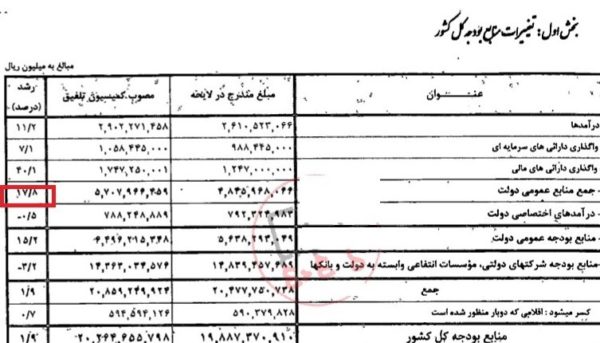 بخش اول: تغییرات منابع بودجه کل کشور
مبالغ به میلیون ریال
عنـــــوان مبلغ مندرج در لایحه مصوب کمیسیون تلفیق رشد (درصد)
درآمدها ۲,۶۱۰,۵۲۳,۰۶۴ ۲,۹۰۲,۲۷۱,۴۵۸ ۱۱/۲
واگذاری دارائی های سرمایه ای ۹۸۸,۴۴۵,۰۰۰ ۱,۰۵۸,۴۴۵,۰۰۰ ۷/۱
واگذاری دارائی های مالی ۱,۲۴۷,۰۰۰,۰۰۰ ۱,۷۴۷,۲۵۰,۰۰۱ ۴۰/۱
- جمع منابع عمومی دولت ۴,۸۴۵,۹۶۸,۰۶۴ ۵,۷۰۷,۹۶۶,۴۵۹ ۱۷/۸
- درآمدهای اختصاصی دولت ۷۹۲,۳۲۴,۹۸۳ ۷۸۸,۲۴۸,۸۸۹ -۰/۵
- منابع بودجه عمومی دولت ۵,۶۳۸,۲۹۳,۰۴۹ ۶,۴۹۶,۲۱۵,۳۴۸ ۱۵/۲
- منابع بودجه شرکتهای دولتی، مؤسسات انتفاعی وابسته به دولت و بانکها ۱۴,۸۳۹,۴۵۷,۶۸۹ ۱۴,۳۶۳,۰۳۴,۵۷۶ -۳/۲
جمع ۲۰,۴۷۷,۷۵۰,۷۳۸ ۲۰,۸۵۹,۲۴۹,۹۲۴ ۱/۹
کسر میشود: اقلامی که دوبار منظور شده است ۵۹۰,۳۷۹,۸۲۸ ۵۹۴,۵۹۴,۱۲۶ ۰/۷
منابع بودجه کل کشور ۱۹,۸۸۷,۳۷۰,۹۱۰ ۲۰,۲۶۴,۶۵۵,۷۹۸ ۱/۹